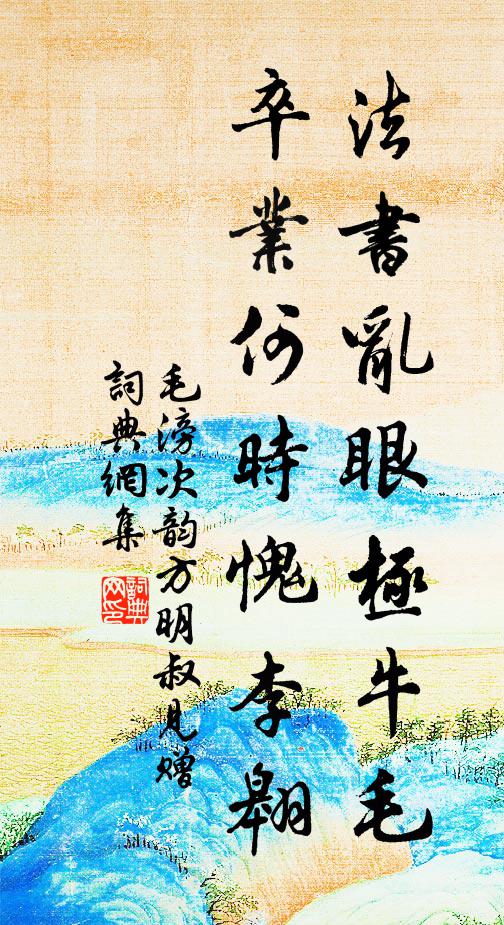 法書亂眼極牛毛
卒業何時愧李翱
毛滂次韵方明叔見贈
詞典網集
詞典網印